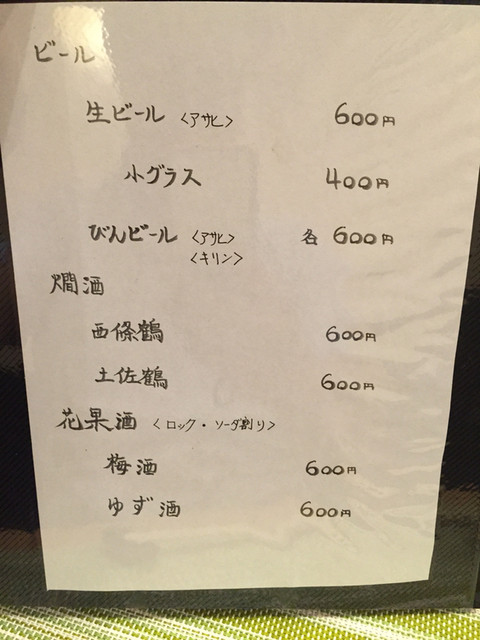 ビール
生ビール <アサヒ> 600円
小グラス 400円
びんビール <アサヒ> 各 600円
<キリン>
燗酒
西條鶴 600円
土佐鶴 600円
花果酒 <ロック・ソーダ割り>
梅酒 600円
ゆず酒 600円